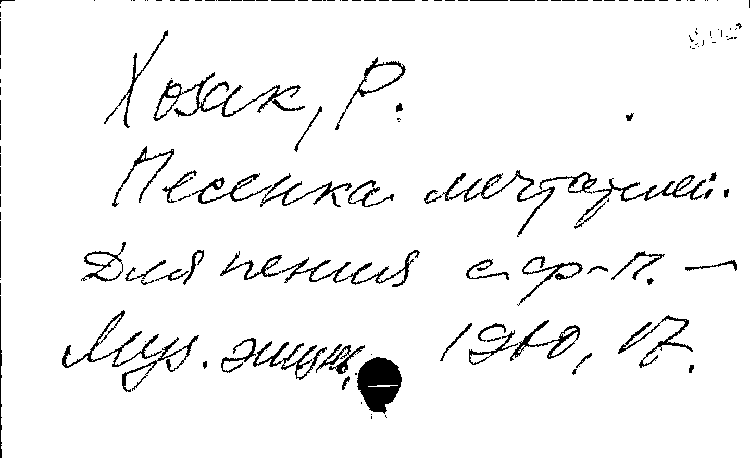 Хозак, Р.
Песенка мечтателей.
Для пения с ф-п. —
Муз. жизнь, 1960, 17.